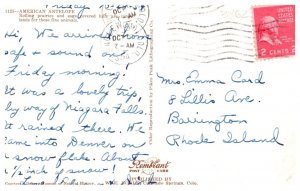 Friday
1123—AMERICAN ANTELOPE
Rolling prairies and sage covered hills
tants for these fine animals.
Hi, We arrived from
safe & sound on
Friday morning!
It was a lovely trip,
by way of Niagara Falls,
it rained there. We
came into Denver on
snow flake. About
1½ inch of snow!
OCT
7 - AM
UNITED STATES POSTAGE
2 CENTS 2
Mrs. Emma Card
8 Lillis Ave.
Barrington
Rhode Island
Rembrant
POST CARD
PUBLISHED BY
Springs, Colo.